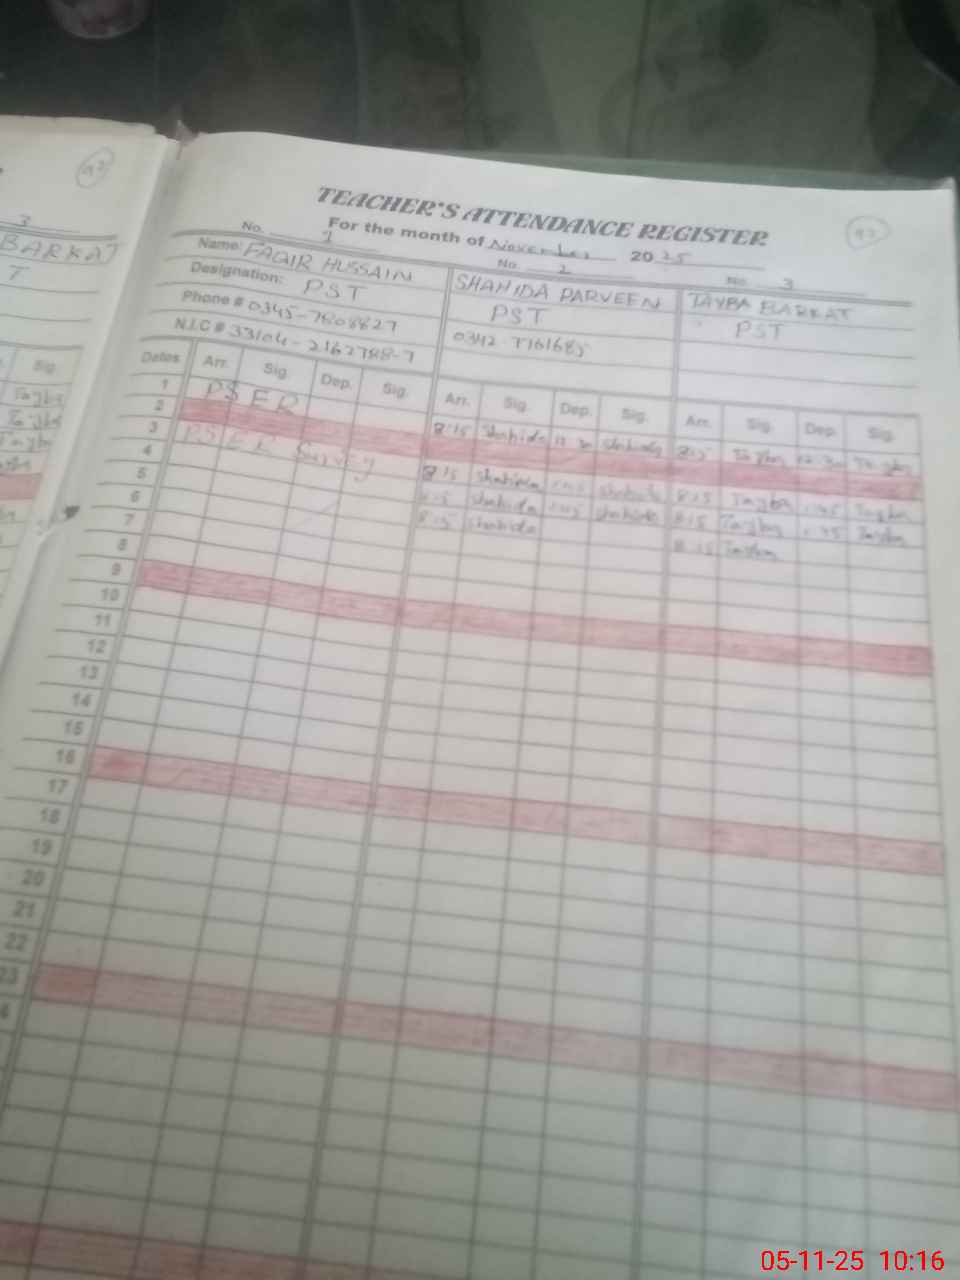 92
3
BARKAT
T
Sig.
Tayba
Tayba
Tayba
TEACHER'S ATTENDANCE REGISTER
92
For the month of November 2025
No. 1 No. 2 No. 3
Name: FAQIR HUSSAIN SHAHIDA PARVEEN TAYBA BARKAT
Designation: PST PST PST
Phone # 0345-7808827
N.I.C # 33104-2162788-7
Dates Arr. Sig. Dep. Sig. Arr. Sig. Dep. Sig. Arr. Sig. Dep. Sig.
1 PSER 8:15 Shahida Shahida Tayba Tayba
2
3 PSER Survey 8:15 Shahida Shahida 8:15 Tayba 1:45 Tayba
4 8:15 Shahida Shahida 8:15 Tayba 1:45 Tayba
5 8:15 Shahida 8:15 Tayba
6
7
8
9
10
11
12
13
14
15
16
17
18
19
20
21
22
23
05-11-25 10:16